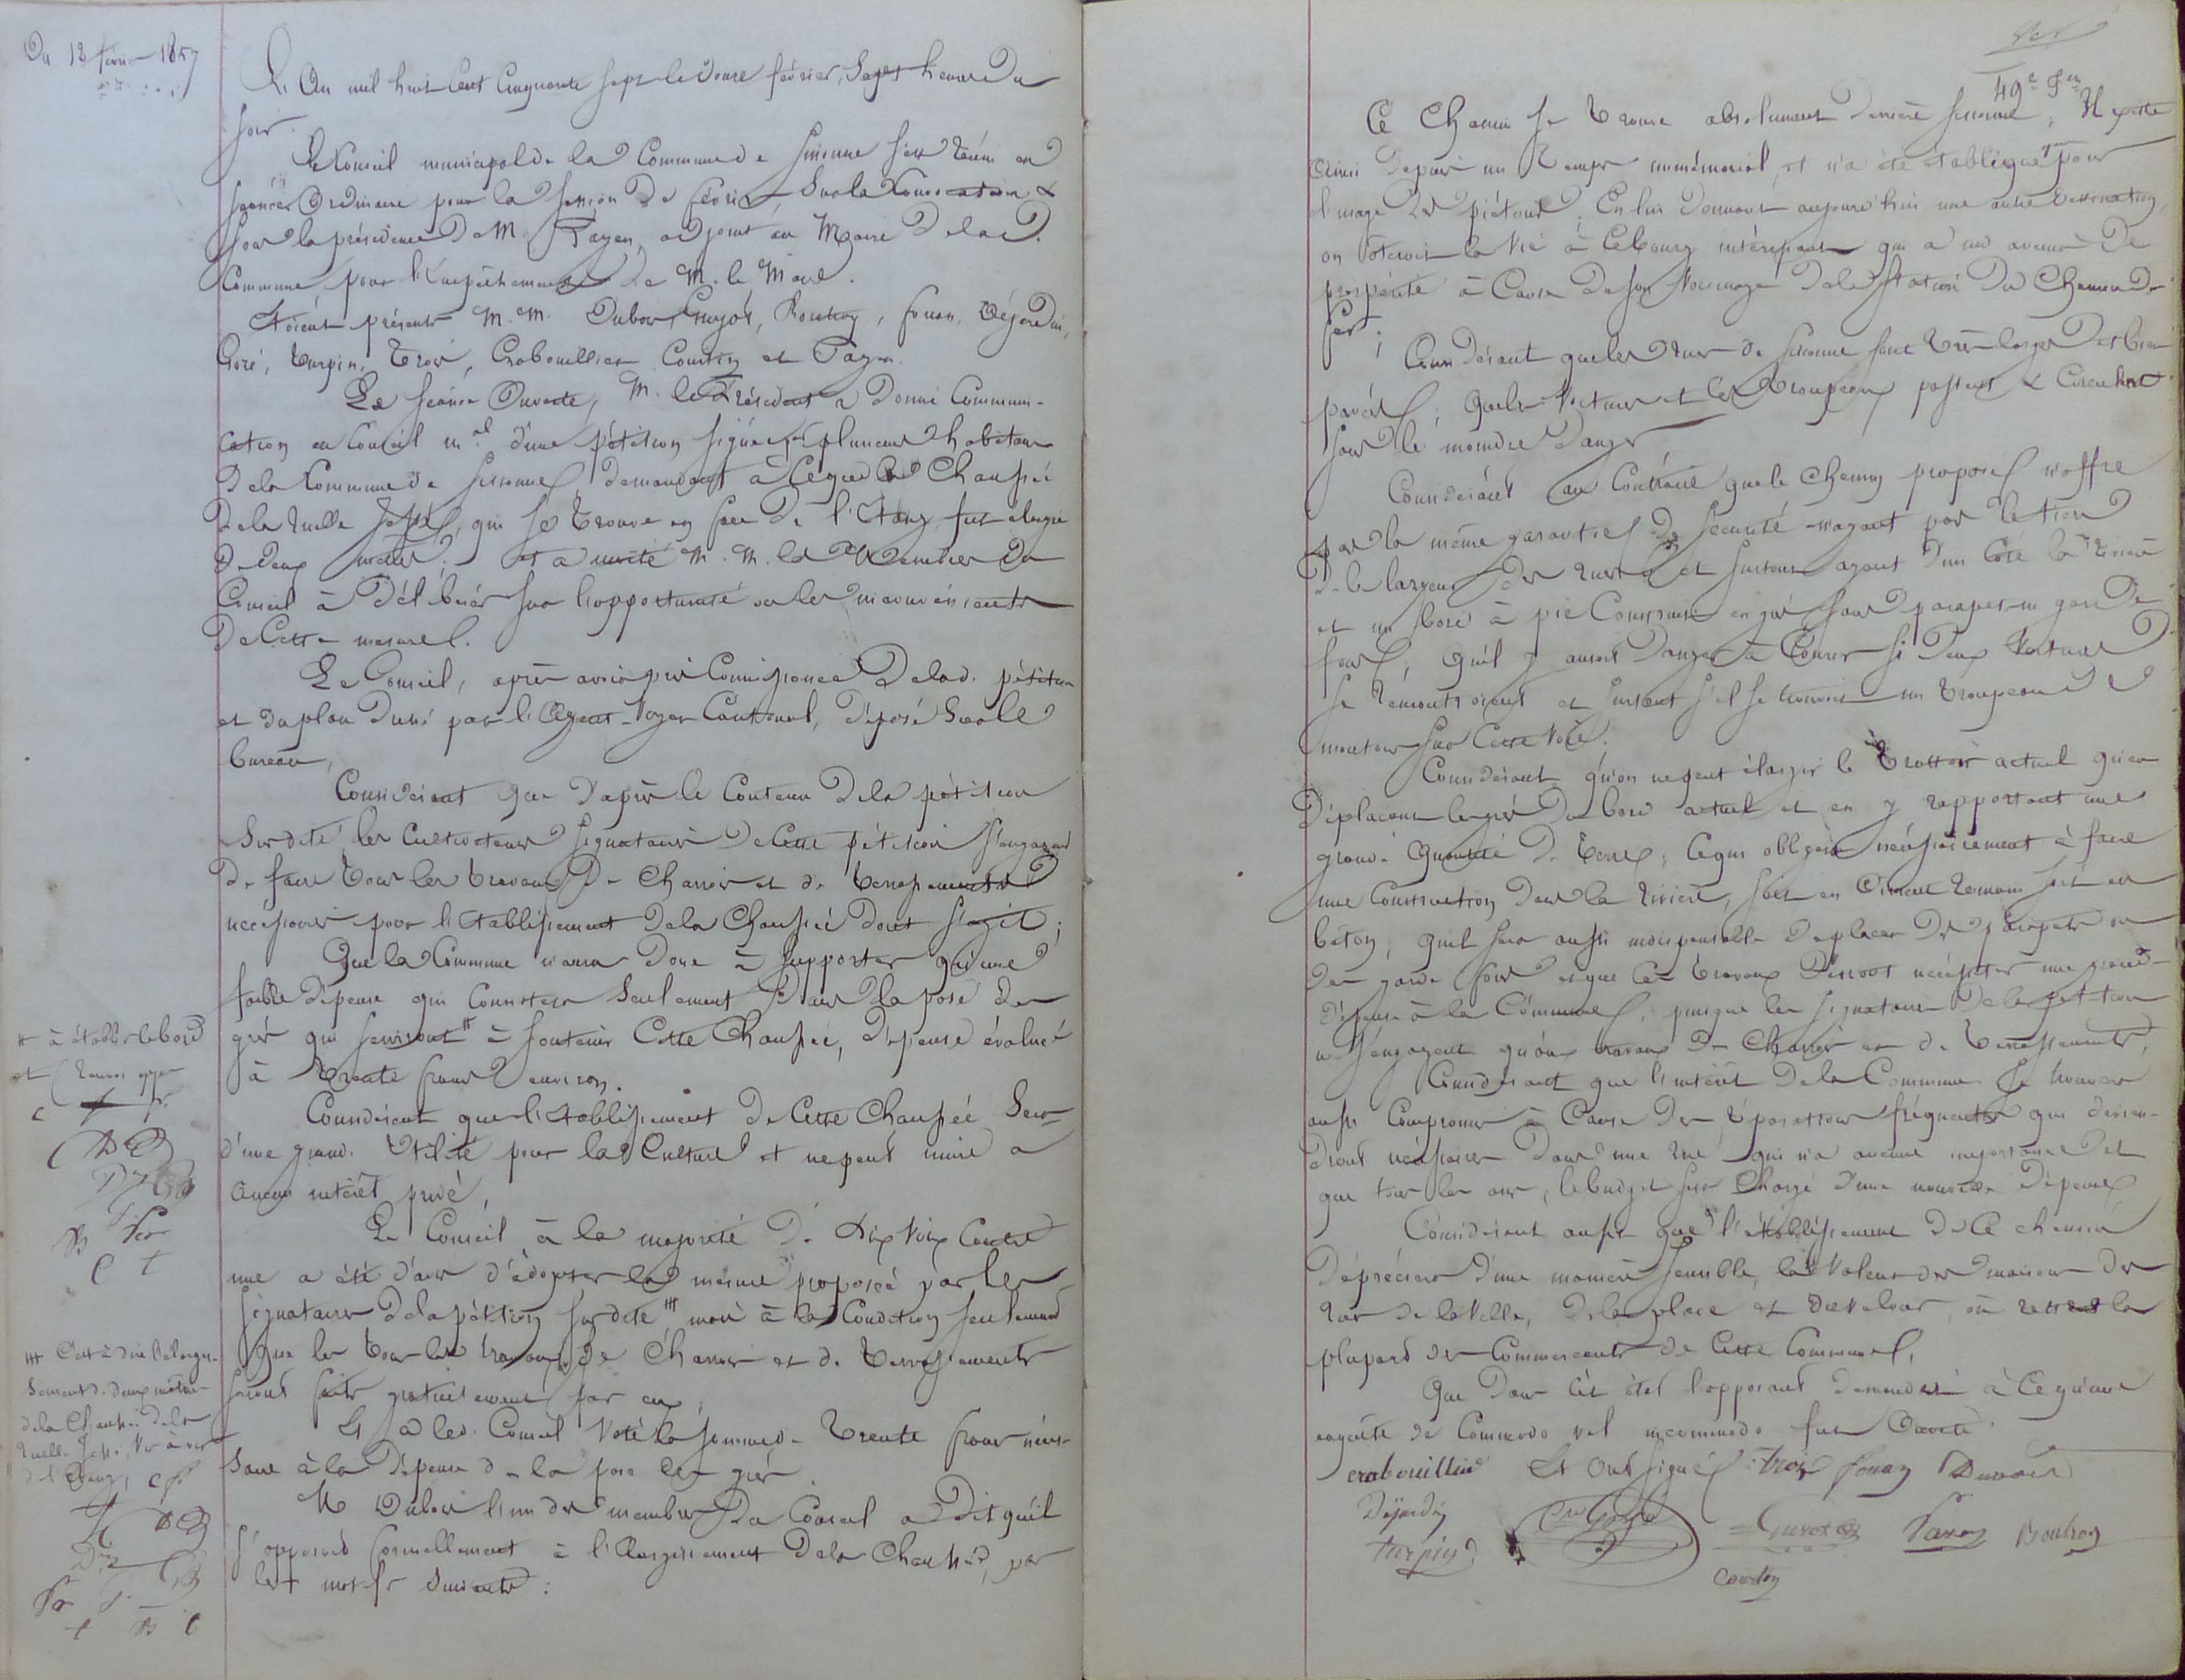 Du 12 février 1857
L'An mil huit Cent Cinquante sept le douze février, Sept heures du
soir.
Le Conseil municipal de la Commune de s'est réuni en
séance Ordinaire pour la session de février Sur la Convocation &
sous la présidence de M. Payen, adjoint au Maire de lad.
Commune pour l'Empêchement de M. le Maire.
Etaient présents M.M. Dubois, Guyot, Boutroy, fouan, Déjardin,
Turpin, Troï, Crabouillier, Courtoy et Payen.
La séance Ouverte, M. le Président a donné Communi-
cation au Conseil m.al d'une pétition signée de plusieurs habitans
de la Commune de demandant à ce que la Chaussée
de la ruelle qui se trouve en face de l'Etang, fut élargie
de deux mètres. et a invité M.M. les Membres du
Conseil à délibérer sur l'opportunité ou les inconvénients
de Cette mesure.
Le Conseil, après avoir pris Connaissance de lad. pétition
et du plan dressé par l'Agent-Voyer Cantonal, déposé Sur le
bureau,
Considérant que d'après le Contenu de la pétition
Susdite, les Cultivateurs signataires de Cette pétition s'engagent
de faire tous les travaux de Charrois et de terrassements
nécessaires pour l'établissement de la Chaussée dont s'agit;
Que la Commune n'aura donc à supporter qu'une
faible dépense qui Consistera Seulement dans la pose des
grès qui serviront # à soutenir Cette Chaussée, dépense évaluée
à trente francs environ.
Considérant que l'établissement de Cette Chaussée Sera
d'une grande Utilité pour la Culture et ne peut nuire à
aucun intérêt privé,
Le Conseil, à la majorité de dix Voix Contre
une a été d'avis d'adopter la mesure proposée par les
signataires de la pétition susdite ### mais à la Condition seulement
que les tous les travaux de Charrois et de terrassements
seront faits gratuitement par eux,
Et a led. Conseil Voté la somme de trente francs néces-
saire à la dépense de la pose des grès.
M. Dubois l'un des membres du Conseil a dit qu'il
s'opposait formellement à l'élargissement de la Chaussée, par
les motifs suivants:
# à établir le bord
et
### C'est à dire l'élargis-
sement de deux mètres
de la Chaussée de la
ruelle
de l'Etang,
49e
Ce Chemin se trouve absolument derrière; Il existe
ainsi depuis un temps immémorial, et n'a été établi que pour
l'usage des piétons. En lui donnant aujourd'hui une autre destination,
on ôterait la vie à ce bourg intéressant qui a un avenir de
prospérité à Cause de son Voisinage de la Station du Chemin de
fer;
Considérant que les rues de sont très larges et bien
pavées; Que les Voitures et les troupeaux passent & Circulent
sans le moindre danger
Considérant au Contraire que le Chemin proposé n'offre
pas la même garantie de sécurité n'ayant pas le tiers
de la largeur des rues et surtout ayant d'un Côté la rivière
et un bord à pic Construit en grès sans parapet ni garde
fous, Qu'il y aurait danger à Courir si deux Voitures
se rencontraient et surtout s'il se trouvait un troupeau de
moutons sur Cette Voie.
Considérant qu'on ne peut élargir le trottoir actuel qu'en
déplaçant les grès du bord actuel et en y rapportant une
grande Quantité de terre; Ce qui obligera nécessairement à faire
une Construction dans la rivière, soit en Ciment romain soit en
béton; Qu'il sera aussi indispensable de placer des parapets ou
des garde fous et que Ces travaux devront nécessiter une grande
dépense à la Commune, puisque les signataires de la pétition
ne s'engagent qu'aux travaux de Charrois et de terrassements,
Considérant que l'intérêt de la Commune se trouvera
aussi Compromis à Cause des réparations fréquentes qui devien-
dront nécessaires dans une rue qui n'a aucune importance et
que tous les ans, le budget sera Chargé d'une nouvelle dépense
Considérant aussi que l'établissement de Ce chemin
dépréciera d'une manière sensible, la Valeur des maisons des
rues de la Ville, de la place et où restent la
plupart des Commerçants de Cette Commune,
Que dans Cet état l'opposant demandait à Ce qu'une
enquête de Commodo vel incommodo fut Ouverte.
crabouillier Et Ont signé: troï fouan Dubois
Déjardin
turpin Guyot Payen Boutroy
Courtoy